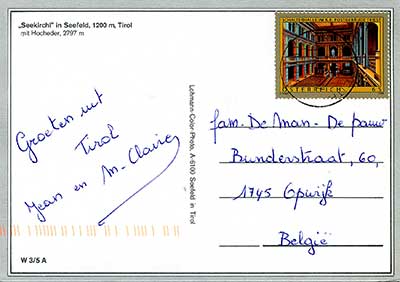 „Seekirchl" in Seefeld, 1200 m, Tirol
mit Hocheder, 2797 m
Groeten uit
Tirol
Jean en M-Claire
W 3/5 A
Lohmann Color Photo, A-6100 Seefeld in Tirol
ÖSTERREICH
fam. De Man - De pauw
Bunderstraat, 60,
1745 Opwijk
België